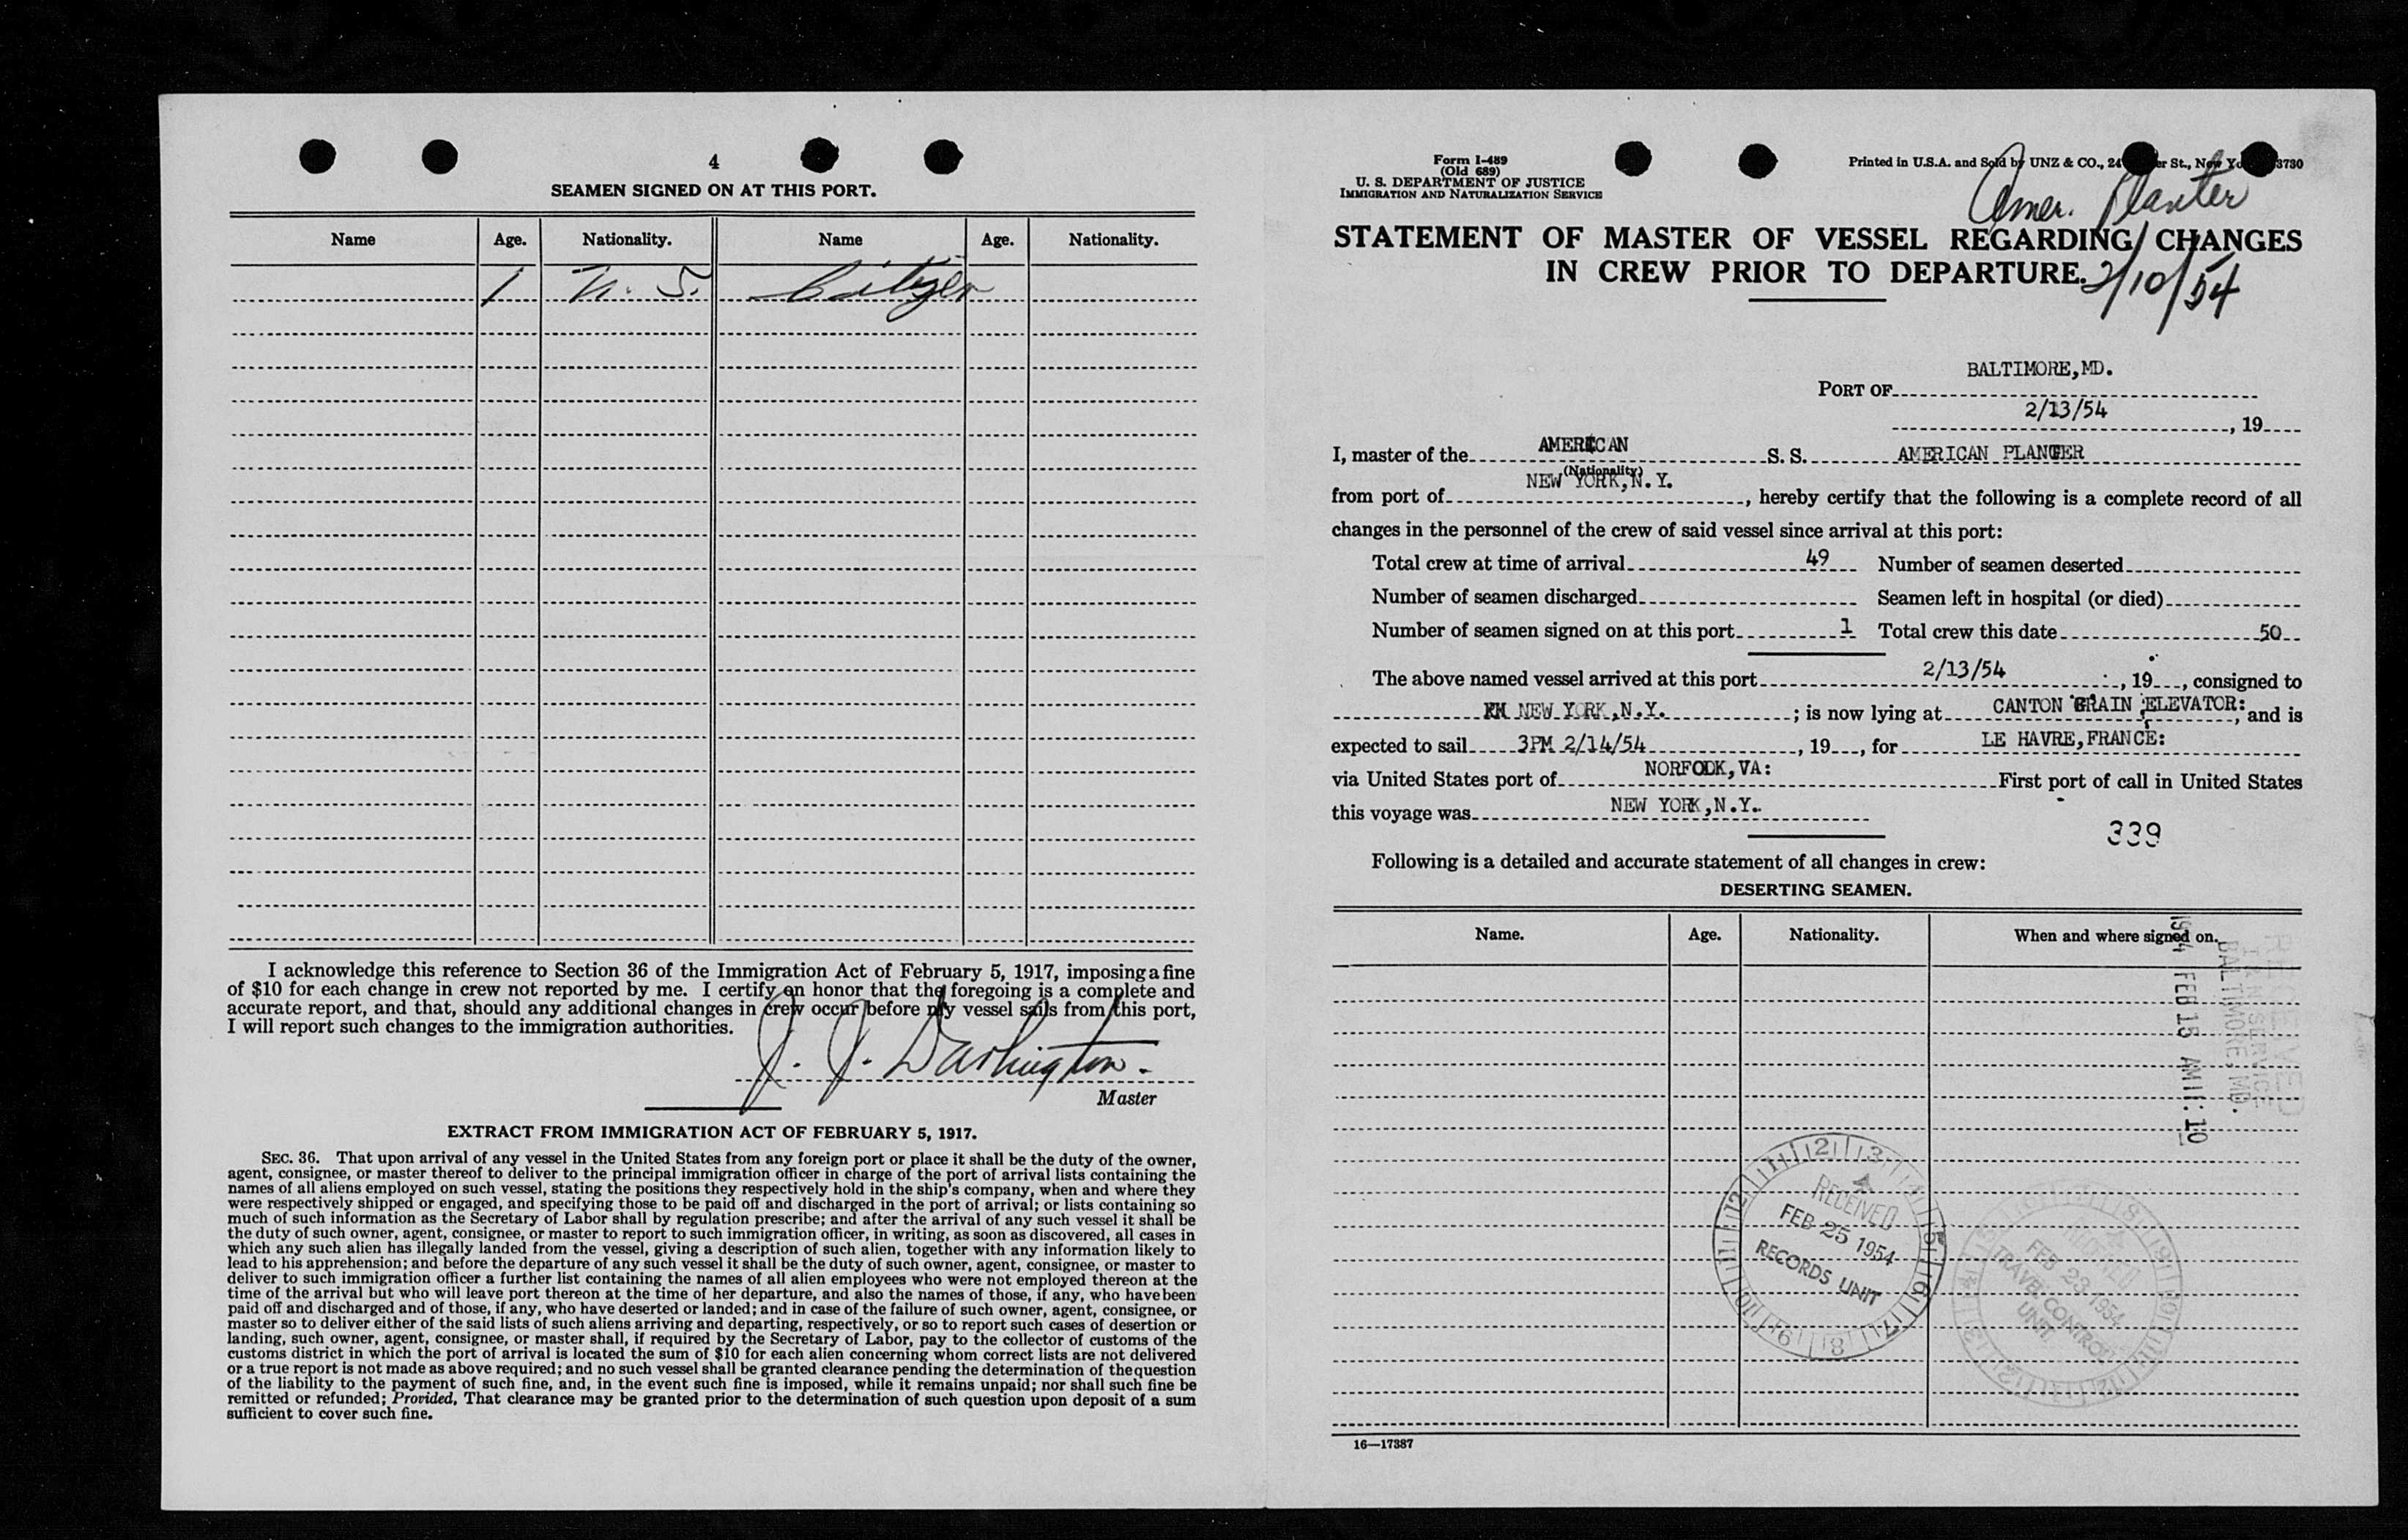 4
SEAMEN SIGNED ON AT THIS PORT.
Name Age. Nationality. Name Age. Nationality.
1 U. S. Citizen
I acknowledge this reference to Section 36 of the Immigration Act of February 5, 1917, imposing a fine
of $10 for each change in crew not reported by me. I certify on honor that the foregoing is a complete and
accurate report, and that, should any additional changes in crew occur before my vessel sails from this port,
I will report such changes to the immigration authorities.
J. J. Darlington.
Master
EXTRACT FROM IMMIGRATION ACT OF FEBRUARY 5, 1917.
SEC. 36. That upon arrival of any vessel in the United States from any foreign port or place it shall be the duty of the owner,
agent, consignee, or master thereof to deliver to the principal immigration officer in charge of the port of arrival lists containing the
names of all aliens employed on such vessel, stating the positions they respectively hold in the ship's company, when and where they
were respectively shipped or engaged, and specifying those to be paid off and discharged in the port of arrival; or lists containing so
much of such information as the Secretary of Labor shall by regulation prescribe; and after the arrival of any such vessel it shall be
the duty of such owner, agent, consignee, or master to report to such immigration officer, in writing, as soon as discovered, all cases in
which any such alien has illegally landed from the vessel, giving a description of such alien, together with any information likely to
lead to his apprehension; and before the departure of any such vessel it shall be the duty of such owner, agent, consignee, or master to
deliver to such immigration officer a further list containing the names of all alien employees who were not employed thereon at the
time of the arrival but who will leave port thereon at the time of her departure, and also the names of those, if any, who have been
paid off and discharged and of those, if any, who have deserted or landed; and in case of the failure of such owner, agent, consignee, or
master so to deliver either of the said lists of such aliens arriving and departing, respectively, or so to report such cases of desertion or
landing, such owner, agent, consignee, or master shall, if required by the Secretary of Labor, pay to the collector of customs of the
customs district in which the port of arrival is located the sum of $10 for each alien concerning whom correct lists are not delivered
or a true report is not made as above required; and no such vessel shall be granted clearance pending the determination of the question
of the liability to the payment of such fine, and, in the event such fine is imposed, while it remains unpaid; nor shall such fine be
remitted or refunded; Provided, That clearance may be granted prior to the determination of such question upon deposit of a sum
sufficient to cover such fine.
Form I-489
(Old 689)
U. S. DEPARTMENT OF JUSTICE
IMMIGRATION AND NATURALIZATION SERVICE
Printed in U.S.A. and Sold by UNZ & CO., 24 er St., New Yo 3730
Amer. Planter
STATEMENT OF MASTER OF VESSEL REGARDING CHANGES
IN CREW PRIOR TO DEPARTURE.
2/10/54
PORT OF BALTIMORE,MD.
2/13/54 , 19
I, master of the AMERICAN S. S. AMERICAN PLANTER
(Nationality)
from port of NEW YORK,N.Y. , hereby certify that the following is a complete record of all
changes in the personnel of the crew of said vessel since arrival at this port:
Total crew at time of arrival 49 Number of seamen deserted
Number of seamen discharged Seamen left in hospital (or died)
Number of seamen signed on at this port 1 Total crew this date 50
The above named vessel arrived at this port 2/13/54 , 19 , consigned to
NEW YORK,N.Y. ; is now lying at CANTON GRAIN ELEVATOR: , and is
expected to sail 3PM 2/14/54 , 19 , for LE HAVRE,FRANCE:
via United States port of NORFOLK,VA: First port of call in United States
this voyage was NEW YORK,N.Y.
339
Following is a detailed and accurate statement of all changes in crew:
DESERTING SEAMEN.
Name. Age. Nationality. When and where signed on.
RECEIVED
SERVICE
BALTIMORE, MD.
1954 FEB 15 AM 11:10
RECEIVED
FEB 25 1954
RECORDS UNIT
RECEIVED
FEB 23 1954
TRAVEL CONTROL
UNIT
16—17387